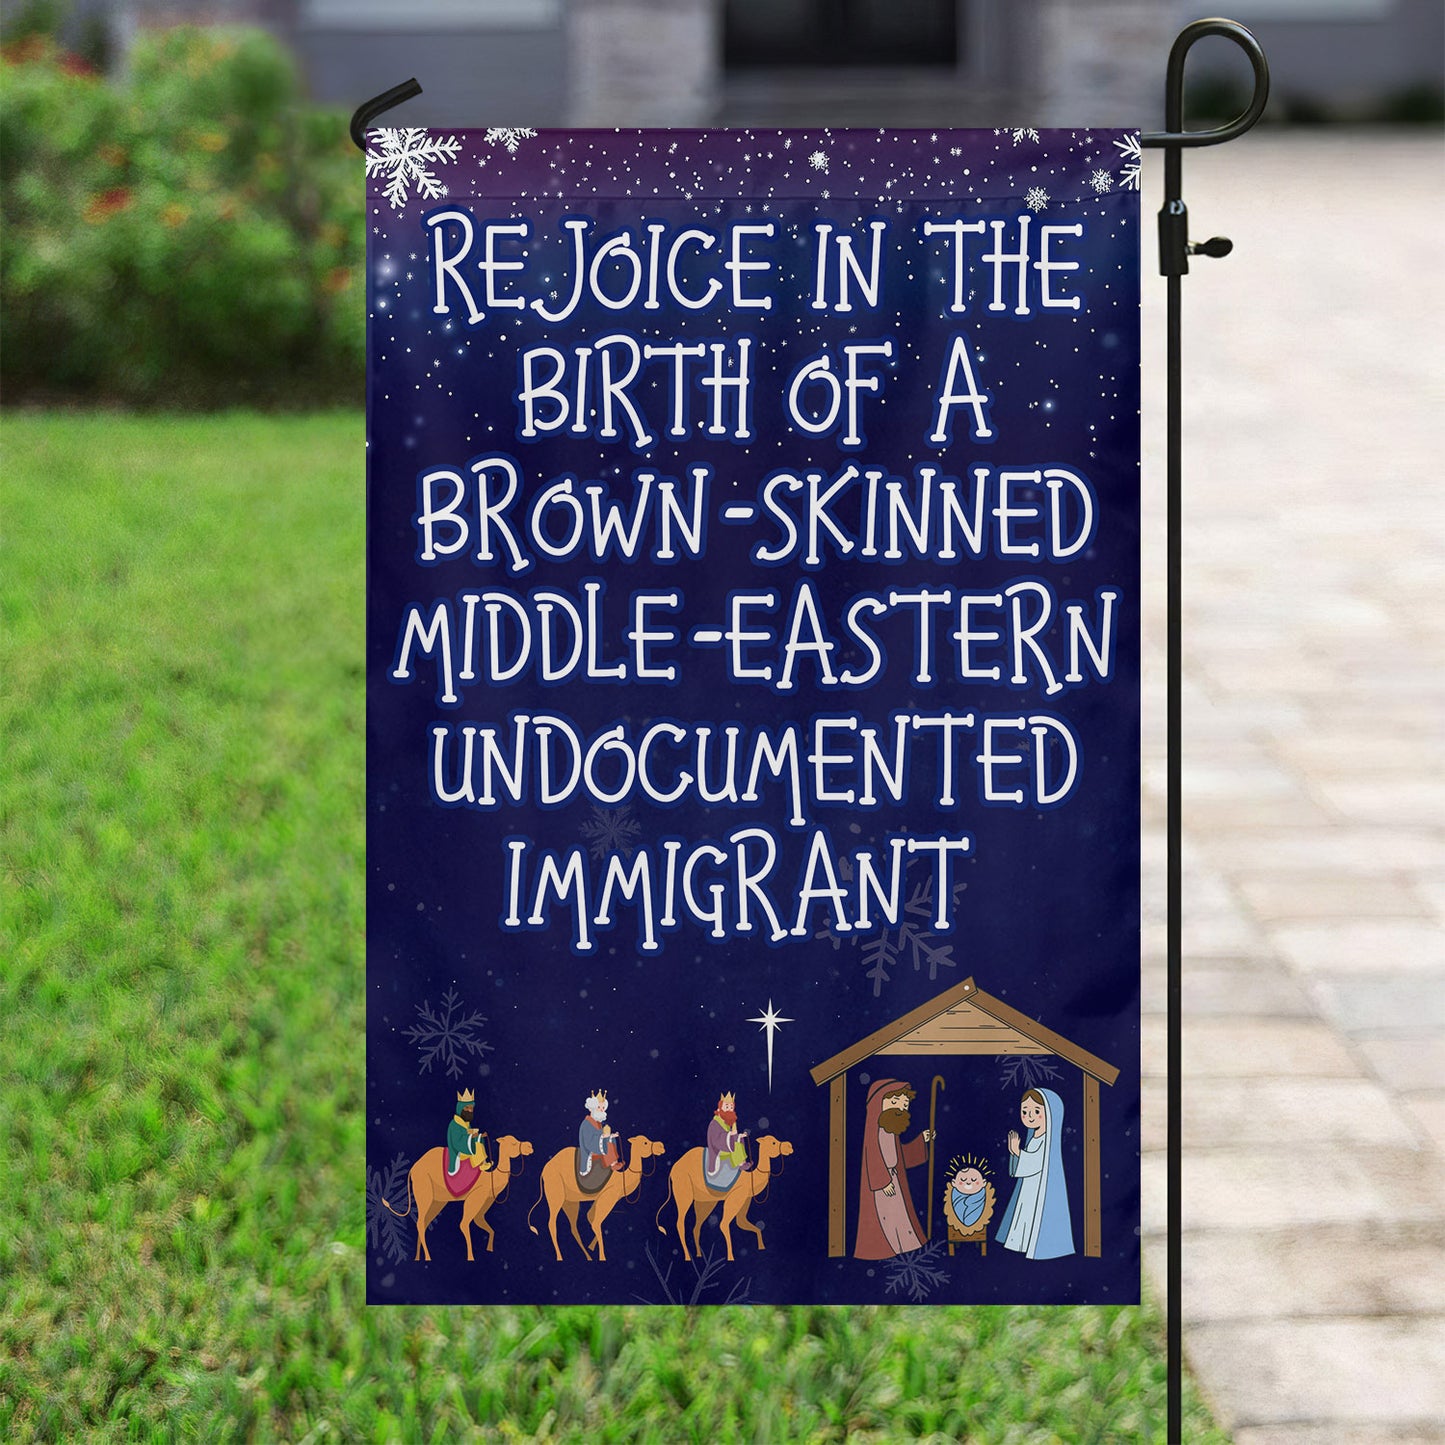 REJOICE IN THE
BIRTH OF A
BROWN-SKINNED
MIDDLE-EASTERN
UNDOCUMENTED
IMMIGRANT